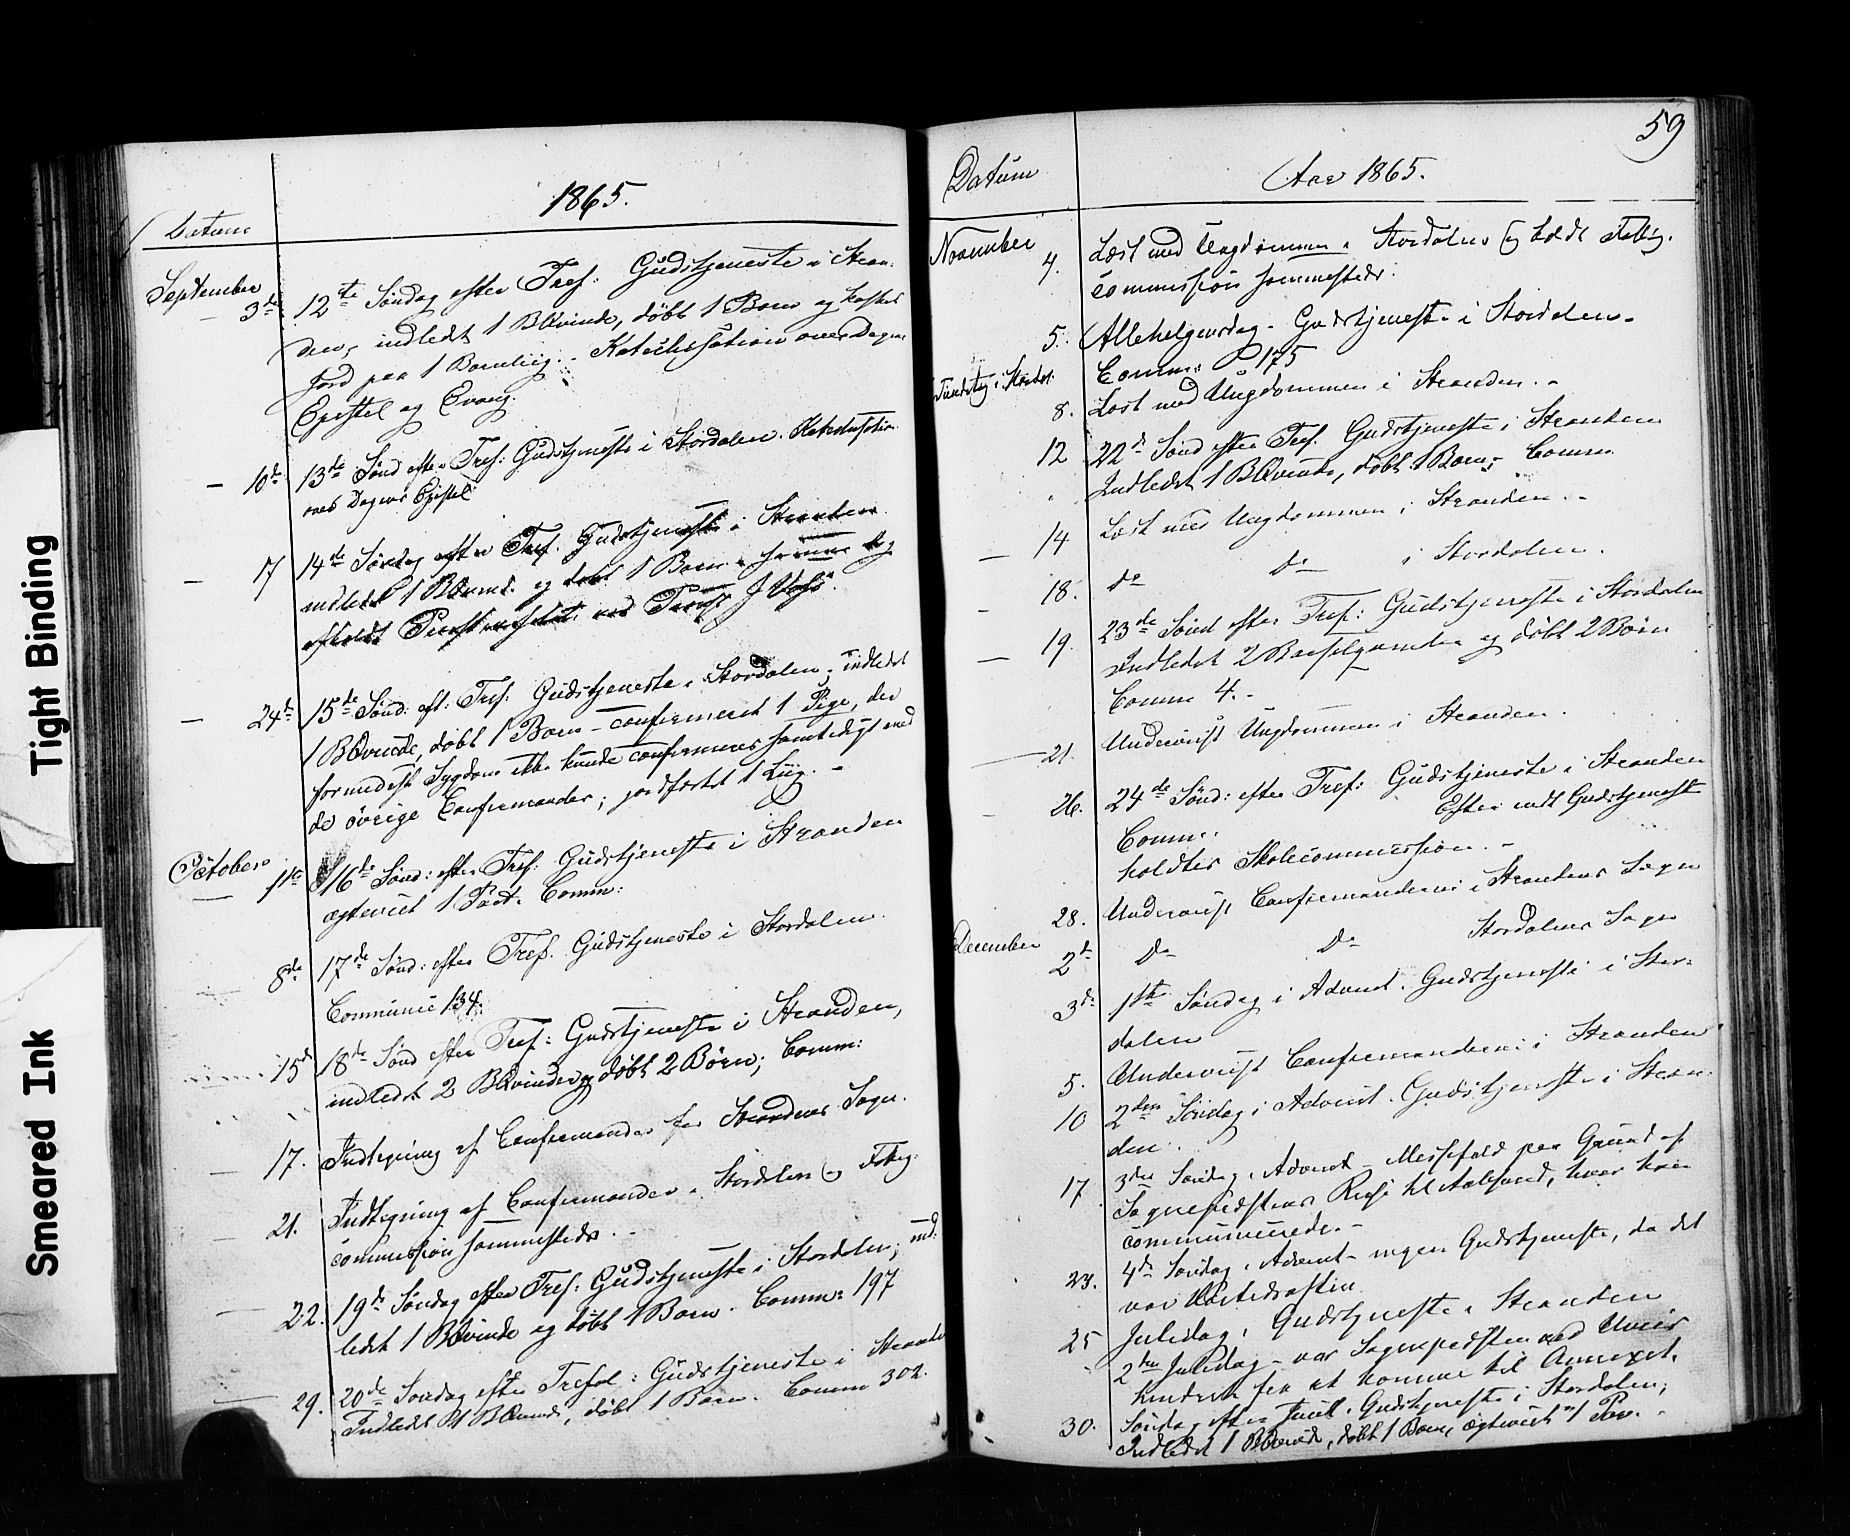 1865.
Datum
September
3de 12te Søndag efter Tref: Gudstjeneste i Stran-
den, indledt 1 BQvinde, døbt 1 Barn og kastet
Jord paa 1 Barnliig. - Katechisation over Dagens
Epistel og Evang:
10de 13de Sønd. efter Tref: Gudstjeneste i Stordalen. Katechisation
over Dagens Epistel
17 14de Søndag efter Tref. Gudstjeneste i Stranden
indledt 1 BQvinde og døbt 1 Barn. samme Dag
afholdt ved Provst
24de 15de Sønd: eft: Tref: Gudstjeneste i Stordalen; indledt
1 BQvinde, døbt 1 Barn - confirmeret 1 Pige, der
formedelst Sygdom ikke kunde confirmeres samtidigt med
de øvrige Confirmander; jordfæstet 1 Liig. -
October
1ste 16de Sønd: efter Tref: Gudstjeneste i Stranden
ægteviet 1 Par. Comm:
8de 17de Sønd: efter Tref. Gudstjeneste i Stordalen.
Communic 134.
15d 18de Sønd efter Tref: Gudstjeneste i Stranden,
indledt 2 BQvinder og døbt 2 Børn; Comm:
17. Indtegning af Confirmander for Strandens Sogn.
21. Indtegning af Confirmander i Stordalen og Fattig-
commission sammesteds. -
22. 19de Søndag efter Tref: Gudstjeneste i Stordalen; ind-
ledt 1 BQvinde og døbt 1 Barn. Comm: 197
29. 20de Søndag efter Trefol: Gudstjeneste i Stranden
Indledt 1 BQvinde, døbt 1 Barn. Comm 302.
59
Datum
Aar 1865.
November
4. Læst med Ungdommen i Stordalen og holdt Fattig-
commission sammesteds.
5. Allehelgensdag - Gudstjeneste i Stordalen -
Comm: 175
8. Læst med Ungdommen i Stranden. -
12 22de Sønd efter Tref. Gudstjeneste i Stranden
Indledet 1 BQvinde, døbt 1 Barn; Comm.
14 Læst med Ungdommen i Stranden. -
18. do do i Stordalen.
19. 23de Sønd efter Tref: Gudstjeneste i Stordalen
Indledet 2 Barselqvinder og døbt 2 Børn
Comm 4. -
21. Underviist Ungdommen i Stranden.
26. 24de Sønd: efter Tref: Gudstjeneste i Stranden
Comm: Efter endt Gudstjeneste
holdtes Skolecommission. -
28. Underviist Confirmanderne i Strandens Sogn
December
2de do do Stordalens Sogn
3de 1ste Søndag i Advent. Gudstjeneste i Stor-
dalen
5. Underviist Confirmanderne i Stranden
10 2den Søndag i Advent. Gudstjeneste i Stran-
den.
17 3die Søndag i Advent - Messefald paa Grund af
Sognepræstens Reise til Aalesund, hvor han
communicerede. -
24. 4de Søndag i Advent - ingen Gudstjeneste, da det
var
25 Juledag, Gudstjeneste i Stranden
2den Juledag - var Sognepræsten ved Uveir
hindret fra at komme til Annexet.
30. Søndag efter Juul, Gudstjeneste i Stordalen;
Indledet 1 BQvinde, døbt 1 Barn, ægteviet 1 Par. -
Tight Binding
Smeared Ink